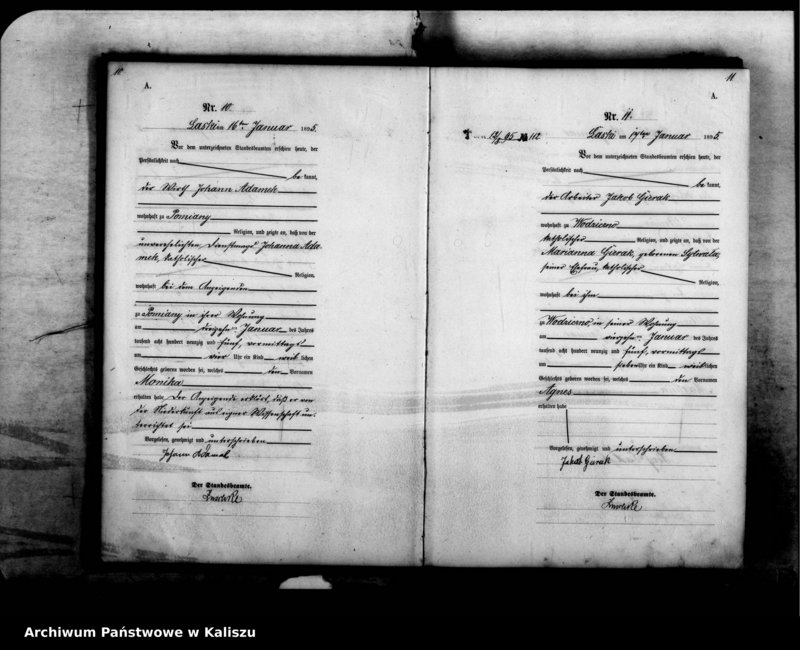 10
A.
Nr. 10.
Laski am 16ten Januar 1895.
Vor dem unterzeichneten Standesbeamten erschien heute, der
Persönlichkeit nach
be kannt,
der Wirth Johann Adamek
wohnhaft zu Pomiany
Religion, und zeigte an, daß von der
unverehelichten Dienstmagd Johanna Ada-
mek, katholischer
Religion,
wohnhaft bei dem Anzeigenden
zu Pomiany in ihrer Wohnung
am vierzehn Januar des Jahres
tausend acht hundert neunzig und fünf, vormittags
um vier Uhr ein Kind weib lichen
Geschlechts geboren worden sei, welches den Vornamen
Monika
erhalten habe. Der Anzeigende erklärt, daß er von
der Niederkunft aus eigner Wissenschaft un-
terrichtet sei
Vorgelesen, genehmigt und unterschrieben
Johann Adamek
Der Standesbeamte.
11
A.
Nr. 11.
12/4 95 № 112
Laski am 17ten Januar 1895.
Vor dem unterzeichneten Standesbeamten erschien heute, der
Persönlichkeit nach
be kannt,
der Arbeiter Jakob Gurak
wohnhaft zu Wodziczno
katholischer Religion, und zeigte an, daß von der
Marianna Gurak, geborenen
seiner Ehefrau, katholischer
Religion,
wohnhaft bei ihm
zu Wodziczno in seiner Wohnung
am vierzehn Januar des Jahres
tausend acht hundert neunzig und fünf, vormittags
um sieben Uhr ein Kind weiblichen
Geschlechts geboren worden sei, welches den Vornamen
Agnes
erhalten habe
Vorgelesen, genehmigt und unterschrieben
Jakob Gurak
Der Standesbeamte.
Archiwum Państwowe w Kaliszu